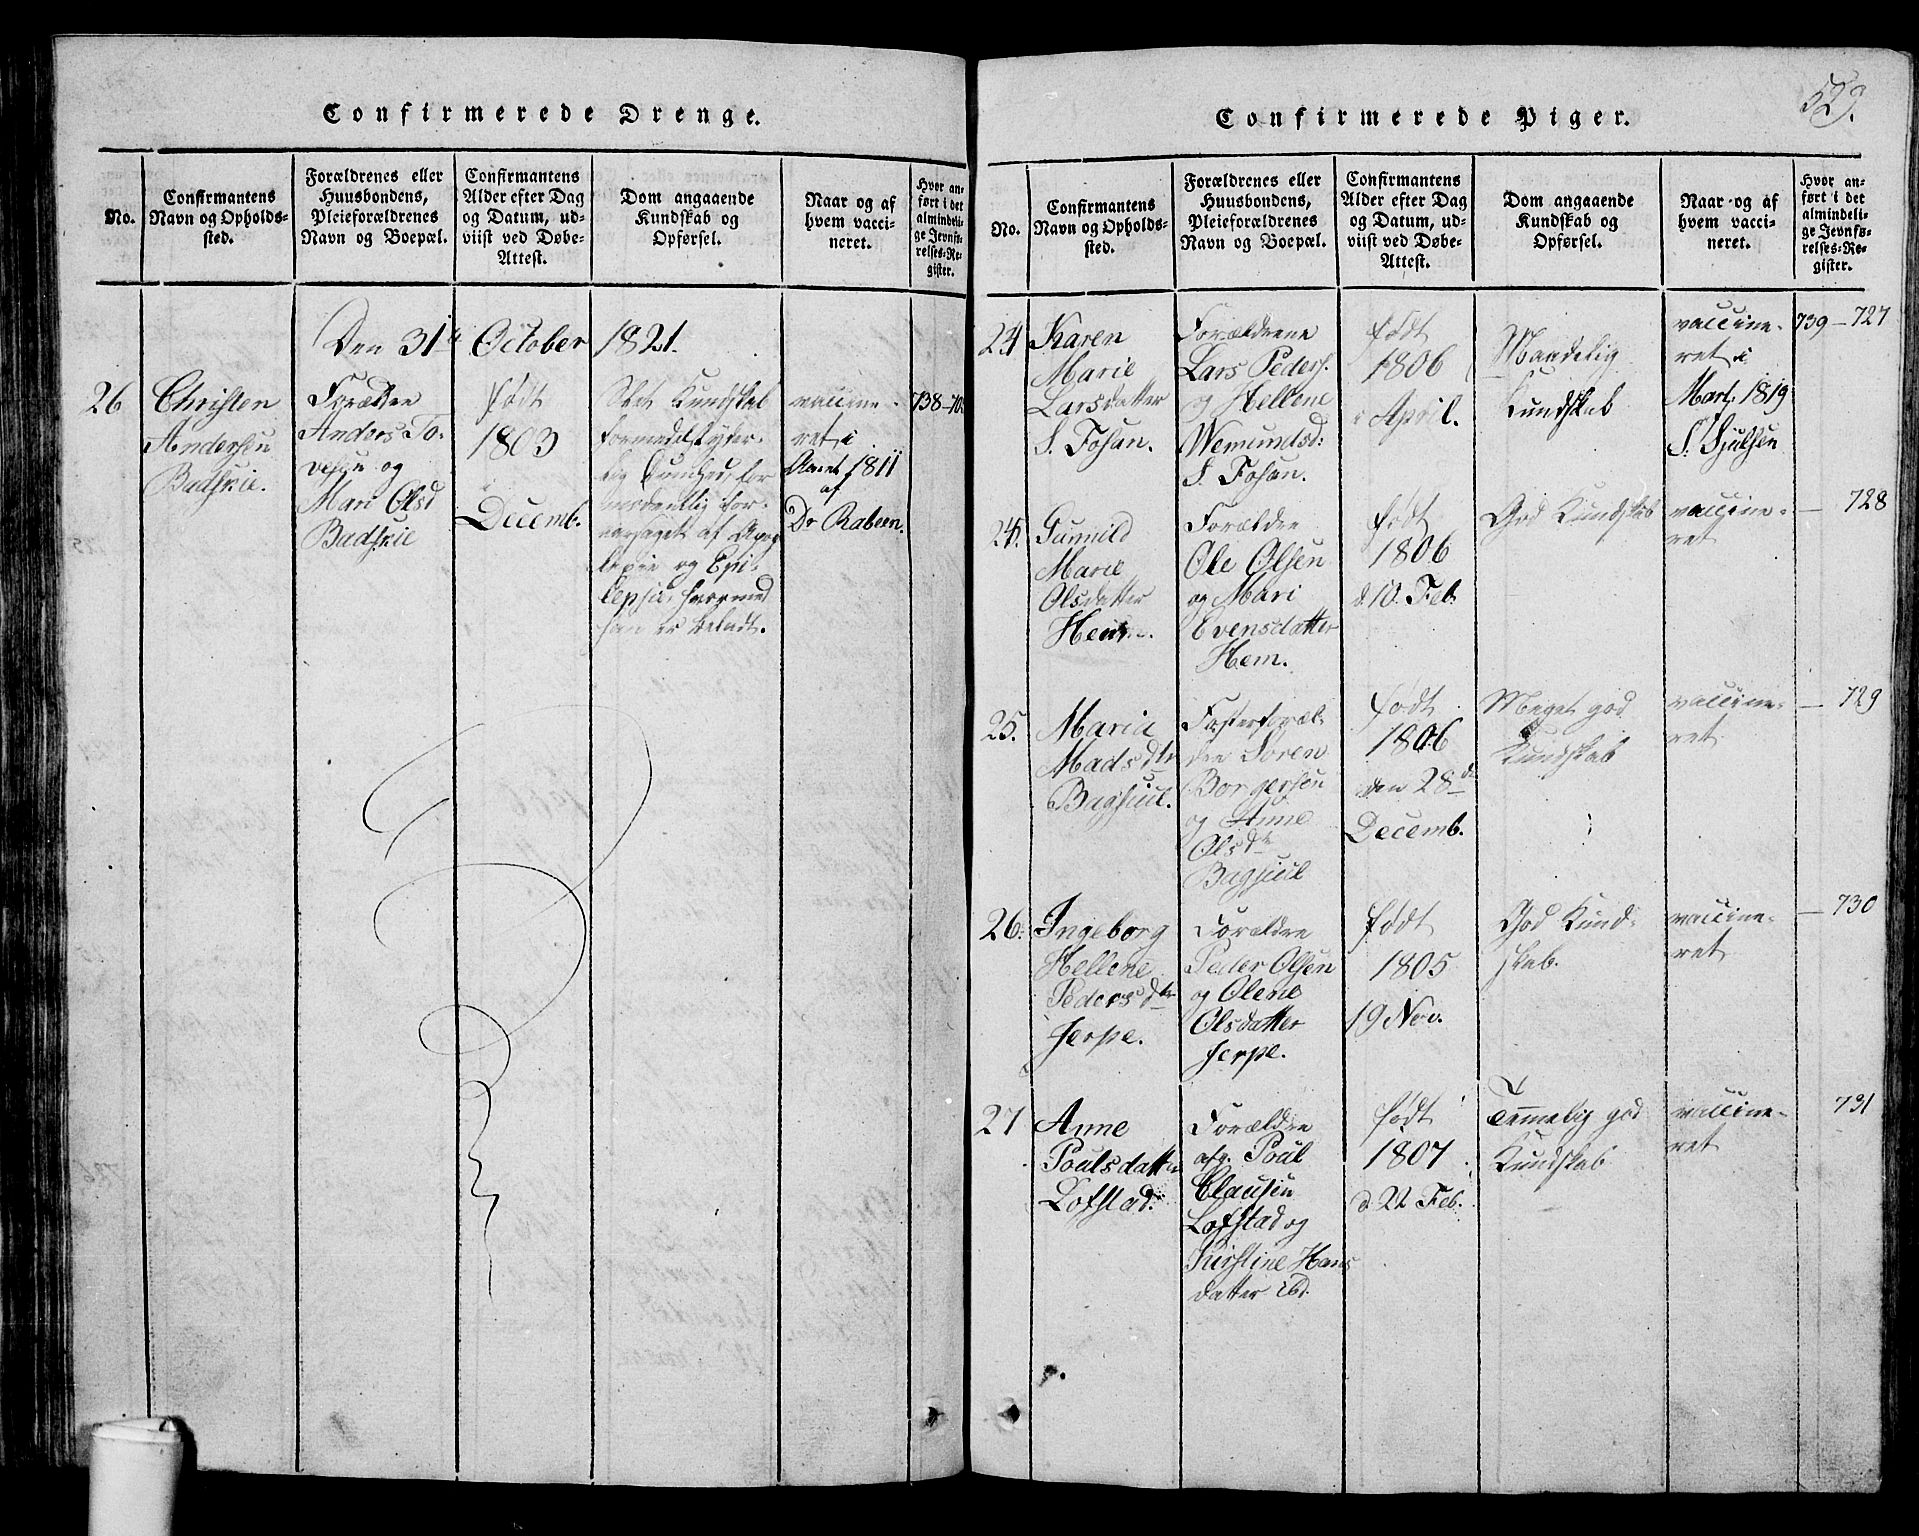 Confirmerede Drenge.
No.
Confirmantens
Navn og Opholds-
sted.
Forældrenes eller
Huusbondens,
Pleieforældrenes
Navn og Boepæl.
Confirmantens
Alder efter Dag
og Datum, ud-
viist ved Døbe-
Attest.
Dom angaaende
Kundskab og
Opførsel.
Naar og af
hvem vacci-
neret.
Hvor an-
ført i det
almindeli-
ge Jevnfø-
relses-Re-
gister.
Den 31te October 1821.
26
Christen
Andersen
Forældre
Anders To-
vesen og
Mari Olsd
født
1803
Decemb.
Slet Kundskab
formedelst
af
og Epi-
lepsie, hvormed
han er beladt.
vaccine-
ret i
Aaret 1811
af
Dr Rabeen.
738-
Confirmerede Piger.
529.
No.
Confirmantens
Navn og Opholds-
sted.
Forældrenes eller
Huusbondens,
Pleieforældrenes
Navn og Boepæl.
Confirmantens
Alder efter Dag
og Datum, ud-
viist ved Døbe-
Attest.
Dom angaaende
Kundskab og
Opførsel.
Naar og af
hvem vacci-
neret.
Hvor an-
ført i det
almindeli-
ge Jevnfø-
relses-Re-
gister.
Karen
Marie
Larsdatter
S. Fosan.
Forældrene
Lars Peders.
og Hellene
Wemundsd:
S. Fosan.
født
1806
i April.
Maadelig
Kundskab
vaccine-
ret i
Marts 1819
739-727
24.
Gunnild
Marie
Olsdatter
Hem.
Forældre
Ole Olsen
og Mari
Evensdatter
Hem.
født
1806
d. 10. Feb.
God Kundskab
vaccine-
ret
- 728
25.
Marie
Madsdtr
Forældre Søren
Borgersen
og Anne
Olsdtr
født
1806
den 28de
Decemb.
Meget god
Kundskab
vaccine-
ret
- 729
26.
Ingeborg
Hellene
Pedersdtr
Jerpe.
Forældre
Peder Olsen
og Olene
Olsdatter
Jerpe.
født
1805
19 Nov.
God Kund-
skab.
vaccine-
ret
- 730
27
Anne
Poulsdatter
Lofstad.
Forældre
afg. Poul
Clausen
Lofstad og
Kirstine Hans
datter ibd.
født
1807
d. 22 Feb.
Temmelig god
Kundskab
vaccine-
ret
731